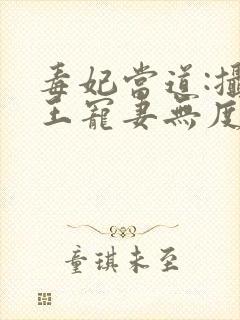 毒妃當道:攝
王寵妻無度
童琪未至